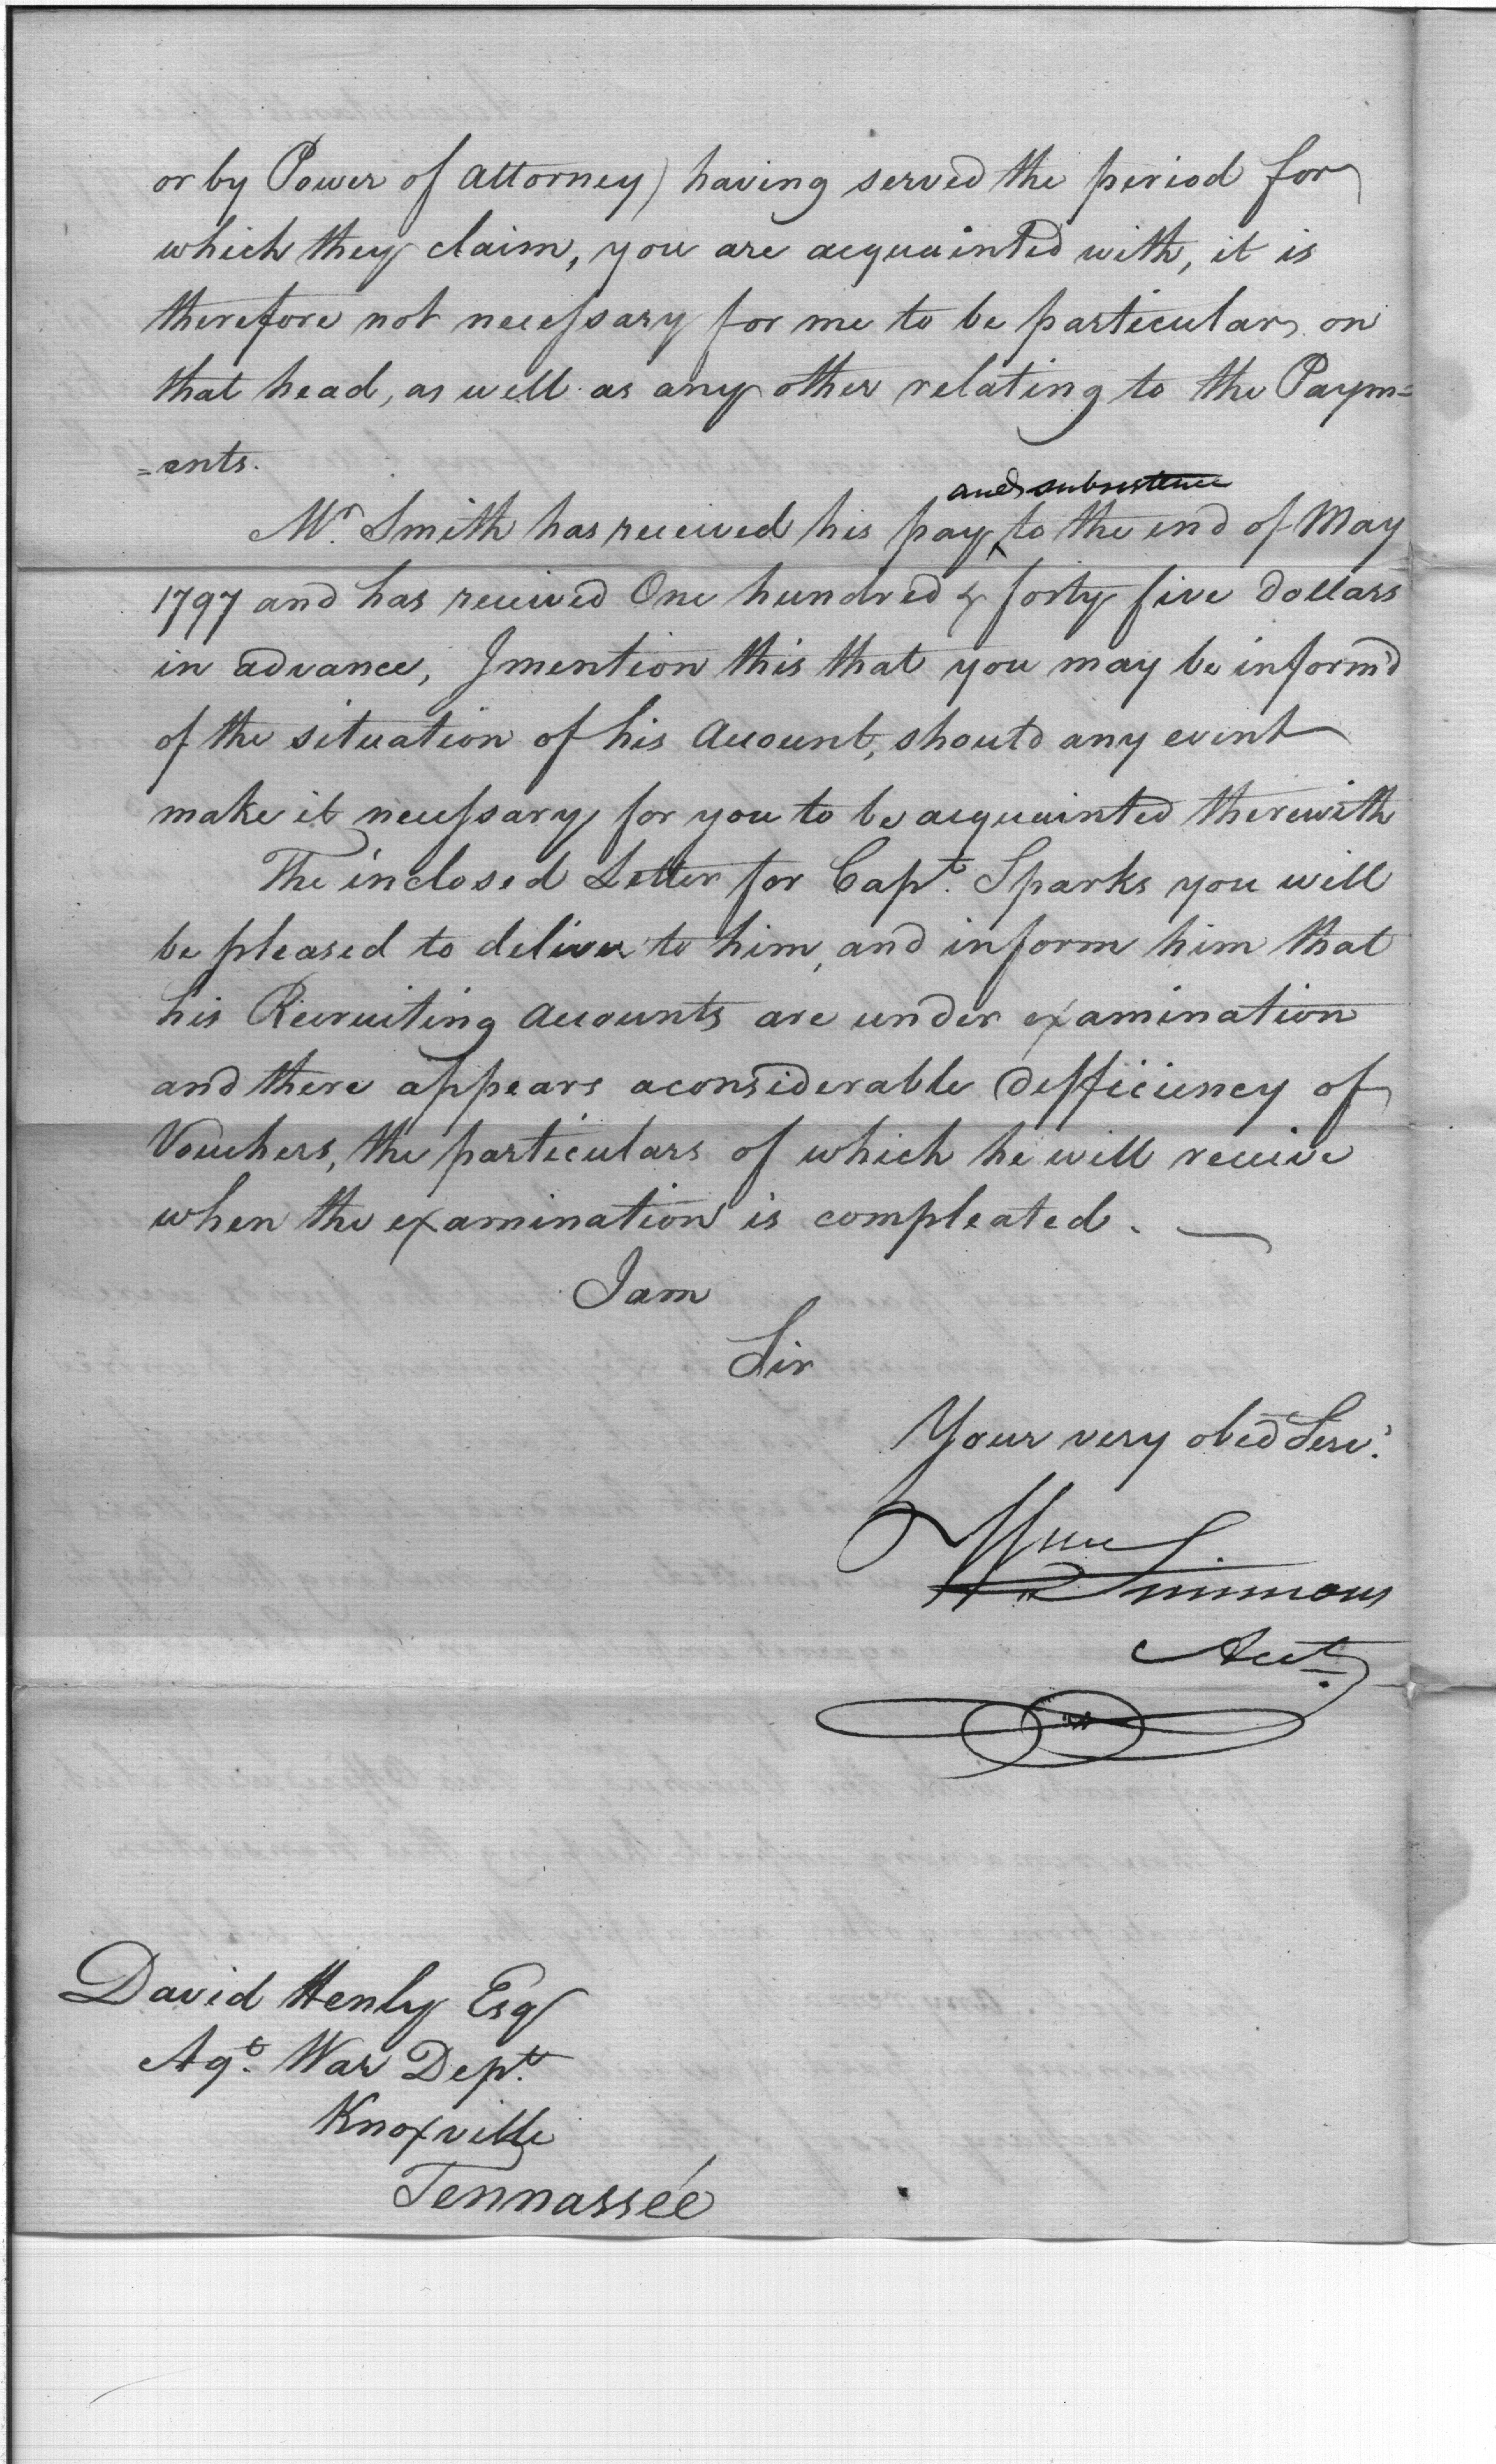 or by Power of Attorney) having served the period for
which they claim, you are acquainted with, it is
therefore not necessary for me to be particular, on
that head, as well as any other relating to the Paym=
=ents.
and subsistence
Mr. Smith has received his pay ‸ to the end of May
1797 and has received One hundred & forty five dollars
in advance, I mention this that you may be inform'd
of the situation of his Account, should any event
make it necessary for you to be acquainted therewith
The inclosed Letter for Capt. Sparks you will
be pleased to deliver to him, and inform him that
his Recruiting Accounts are under examination
and there appears a considerable defficiency of
Vouchers, the particulars of which he will receive
when the examination is compleated. —
I am
Sir
Your very obed Serv.
Wm Simmons
Acct.
David Henly Esq
Agt. War Dept.
Knoxville
Tennassée